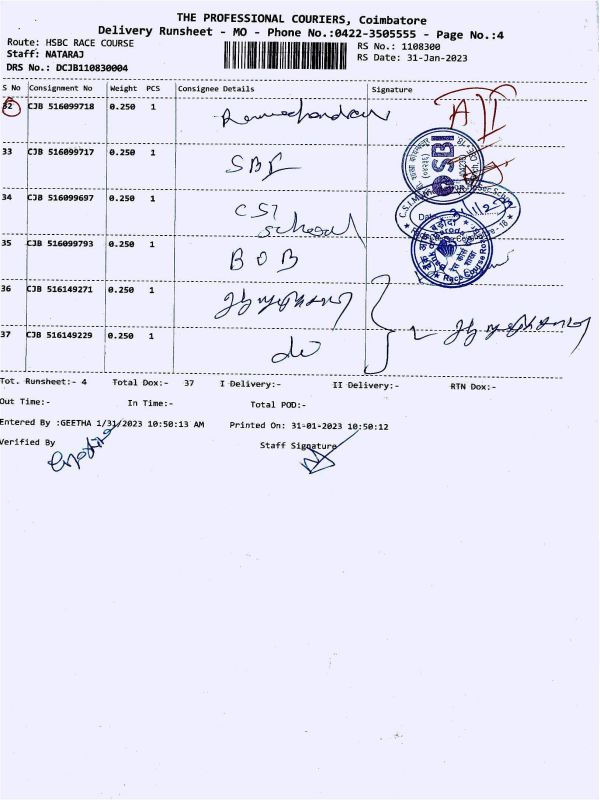 THE PROFESSIONAL COURIERS, Coimbatore
Delivery Runsheet - MO - Phone No.:0422-3505555 - Page No.:4
Route: HSBC RACE COURSE
Staff: NATARAJ
DRS No.: DCJB110830004
RS No.: 1108300
RS Date: 31-Jan-2023
S No Consignment No Weight PCS Consignee Details Signature
32 CJB 516099718 0.250 1 Ramachandran
33 CJB 516099717 0.250 1 SBI
34 CJB 516099697 0.250 1 CSI
School
35 CJB 516099793 0.250 1 BOB
36 CJB 516149271 0.250 1
37 CJB 516149229 0.250 1 do
Tot. Runsheet:- 4 Total Dox:- 37 I Delivery:- II Delivery:- RTN Dox:-
Out Time:- In Time:- Total POD:-
Entered By :GEETHA 1/31/2023 10:50:13 AM Printed On: 31-01-2023 10:50:12
Verified By Staff Signature